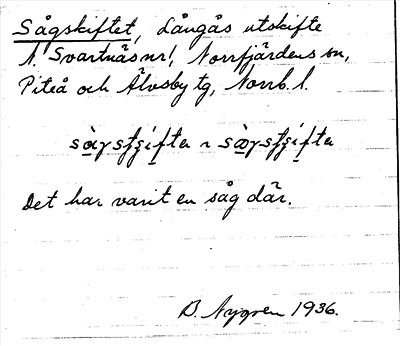 Sågskiftet, Långås utskifte
N. Svartnäs nr 1, Norrfjärdens sn,
Piteå och Älvsby tg, Norrb. l.
Det har varit en såg där.
B. Nygren 1936.